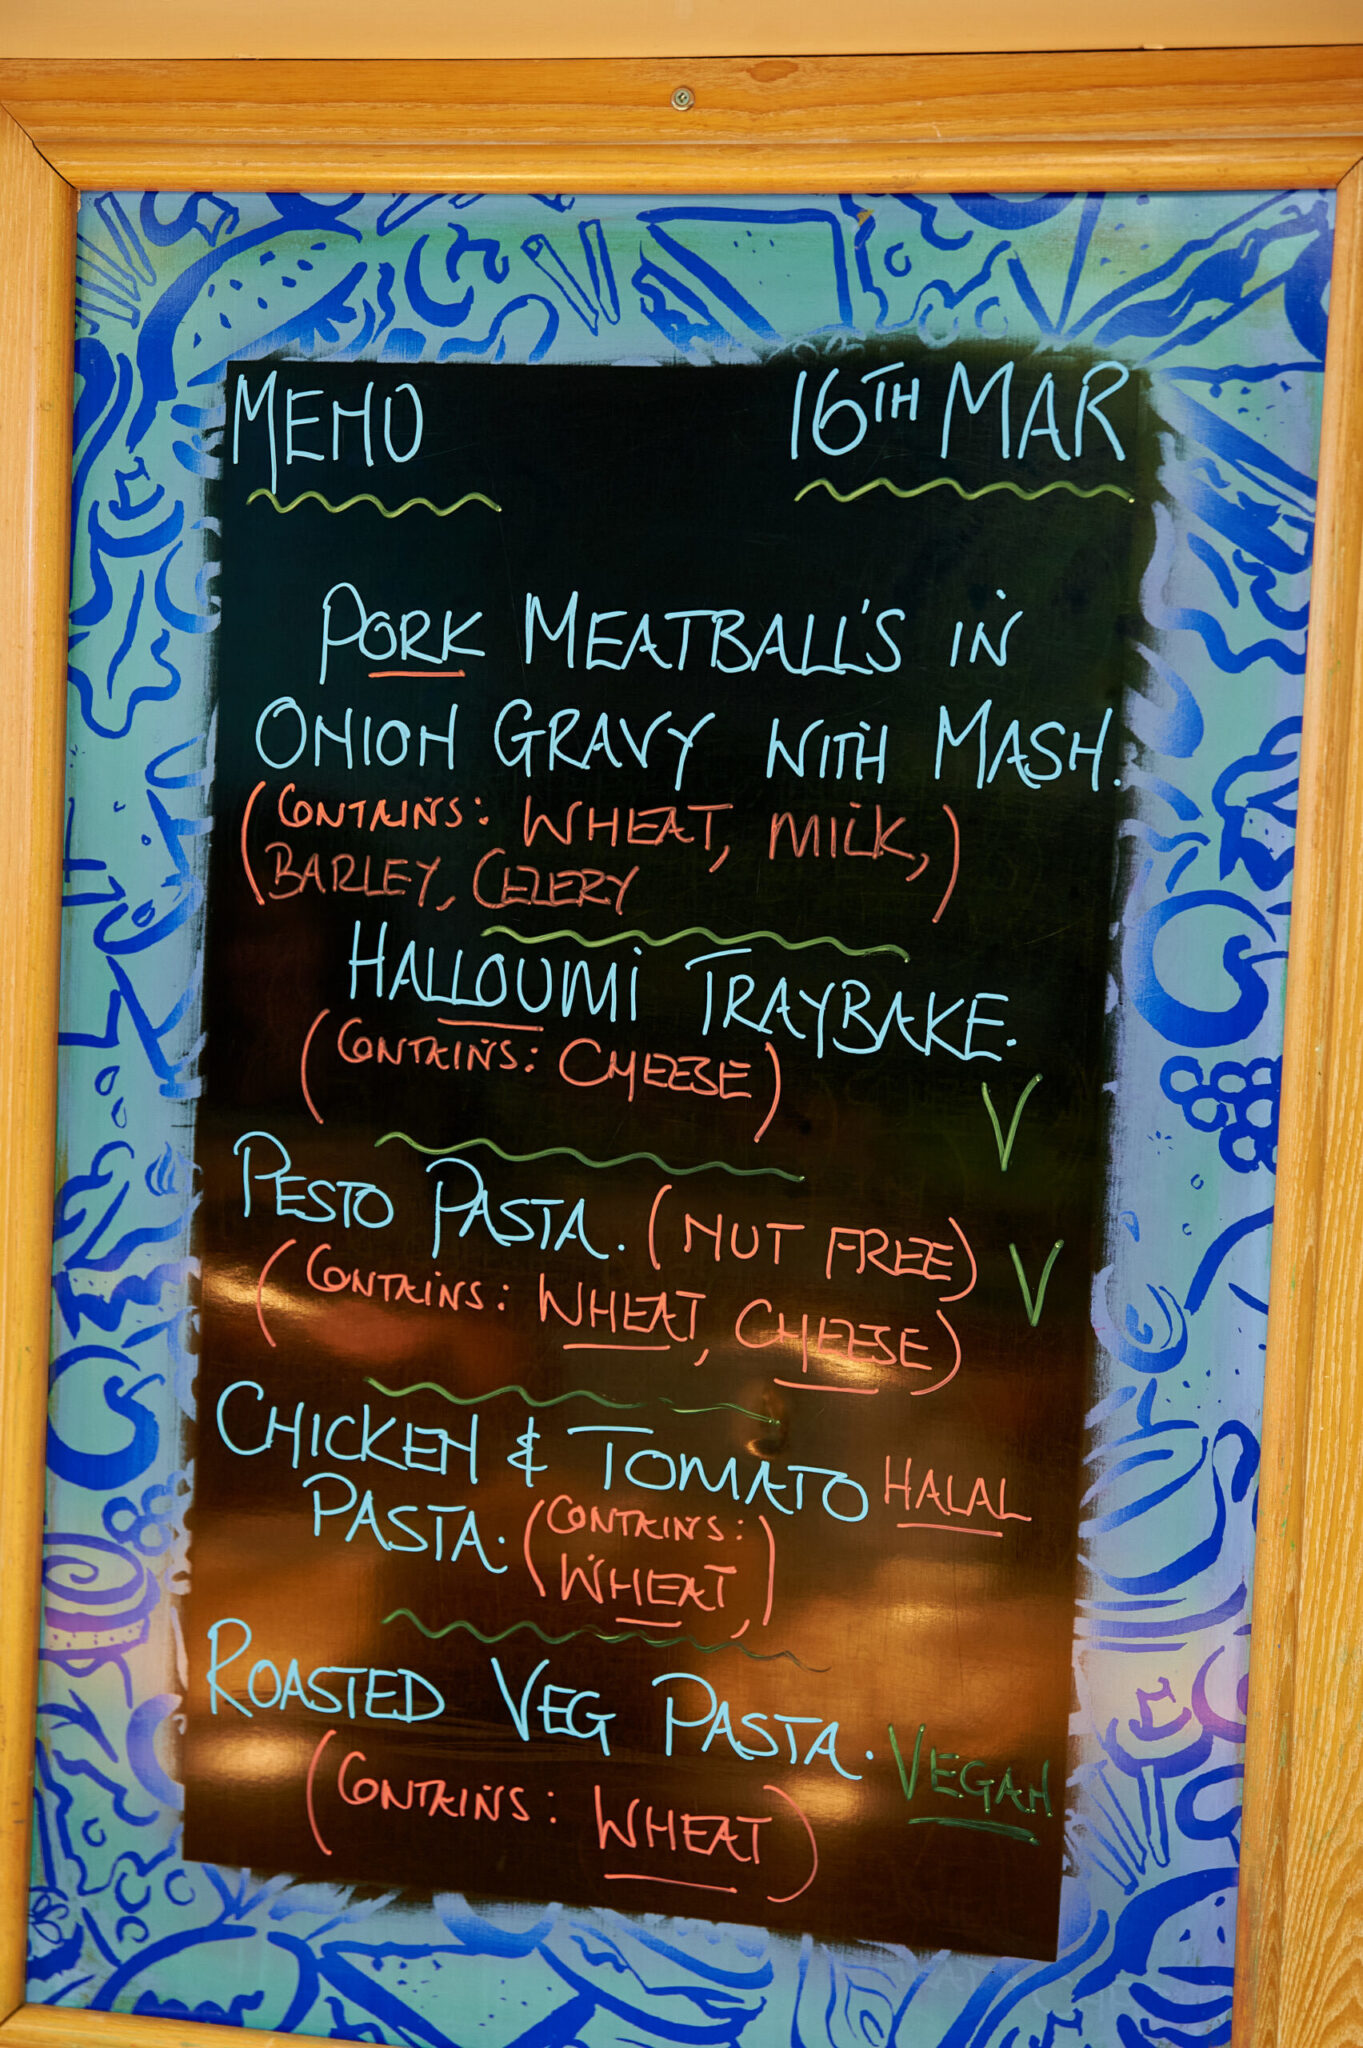 MENU 16TH MAR
PORK MEATBALL'S IN
ONION GRAVY WITH MASH.
(CONTAINS: WHEAT, MILK,
BARLEY, CELERY)
HALLOUMI TRAYBAKE.
(CONTAINS: CHEESE) V
PESTO PASTA. (NUT FREE) V
(CONTAINS: WHEAT, CHEESE)
CHICKEN & TOMATO HALAL
PASTA. (CONTAINS:
WHEAT,)
ROASTED VEG PASTA. VEGAN
(CONTAINS: WHEAT)